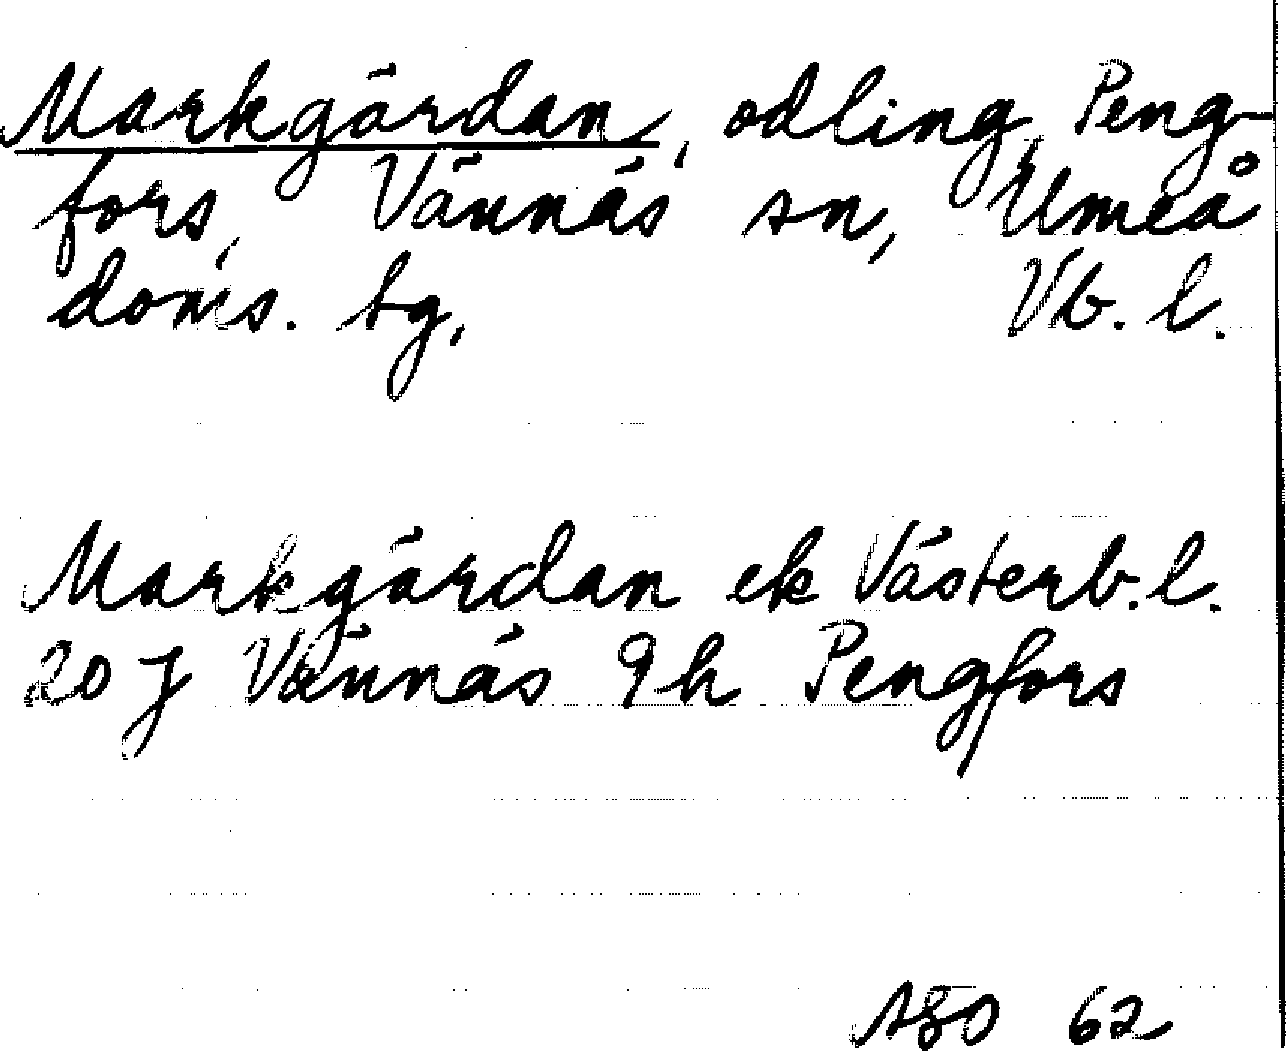 Markgärdan, odling, Peng-
fors, Vännäs sn, Umeå
doms. bg, Vb. l.
Markgärdan ek Västerb. l.
20 J Vännäs 9h Pengfors
ASO 62